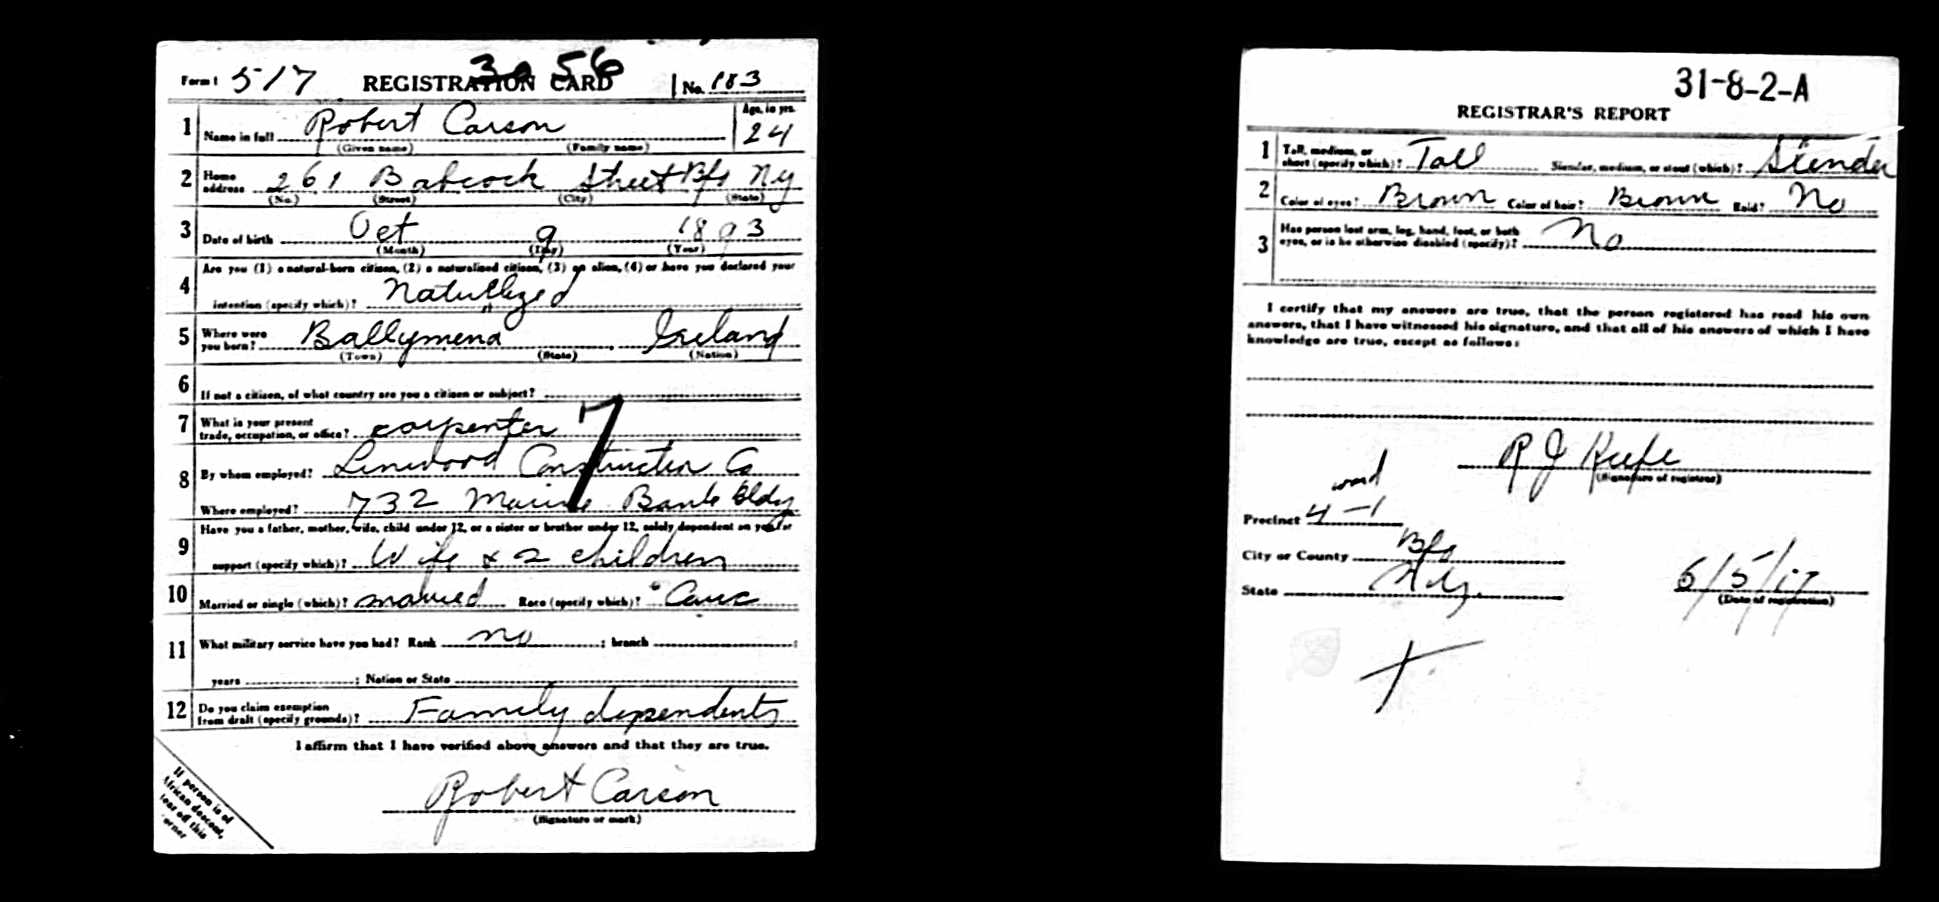 Form 1 517 REGISTRATION CARD No. 183
3056
1 Name in full Robert Carson Age, in yrs. 24
(Given name) (Family name)
2 Home address 261 Babcock Street Bfo NY
(No.) (Street) (City) (State)
3 Date of birth Oct 9 1893
(Month) (Day) (Year)
4 Are you (1) a natural-born citizen, (2) a naturalized citizen, (3) an alien, (4) or have you declared your
intention (specify which)? Naturlized
5 Where were you born? Ballymena Ireland
(Town) (State) (Nation)
6 If not a citizen, of what country are you a citizen or subject?
7 What is your present trade, occupation, or office? carpenter
7
8 By whom employed? Linwood Construction Co
Where employed? 732 Marine Bank Bldg
9 Have you a father, mother, wife, child under 12, or a sister or brother under 12, solely dependent on you for
support (specify which)? Wife & 2 children
10 Married or single (which)? married Race (specify which)? Cauc
11 What military service have you had? Rank no ; branch ;
years ; Nation or State
12 Do you claim exemption from draft (specify grounds)? Family dependents
I affirm that I have verified above answers and that they are true.
Robert Carson
(Signature or mark)
If person is of
African descent,
tear off this
corner
31-8-2-A
REGISTRAR'S REPORT
1 Tall, medium, or short (specify which)? Tall Slender, medium, or stout (which)? Slender
2 Color of eyes? Brown Color of hair? Brown Bald? No
3 Has person lost arm, leg, hand, foot, or both eyes, or is he otherwise disabled (specify)? No
I certify that my answers are true, that the person registered has read his own
answers, that I have witnessed his signature, and that all of his answers of which I have
knowledge are true, except as follows:
R J Keefe
(Signature of registrar)
ward
Precinct 4-1
City or County Bfo
State N.Y.
6/5/17
(Date of registration)